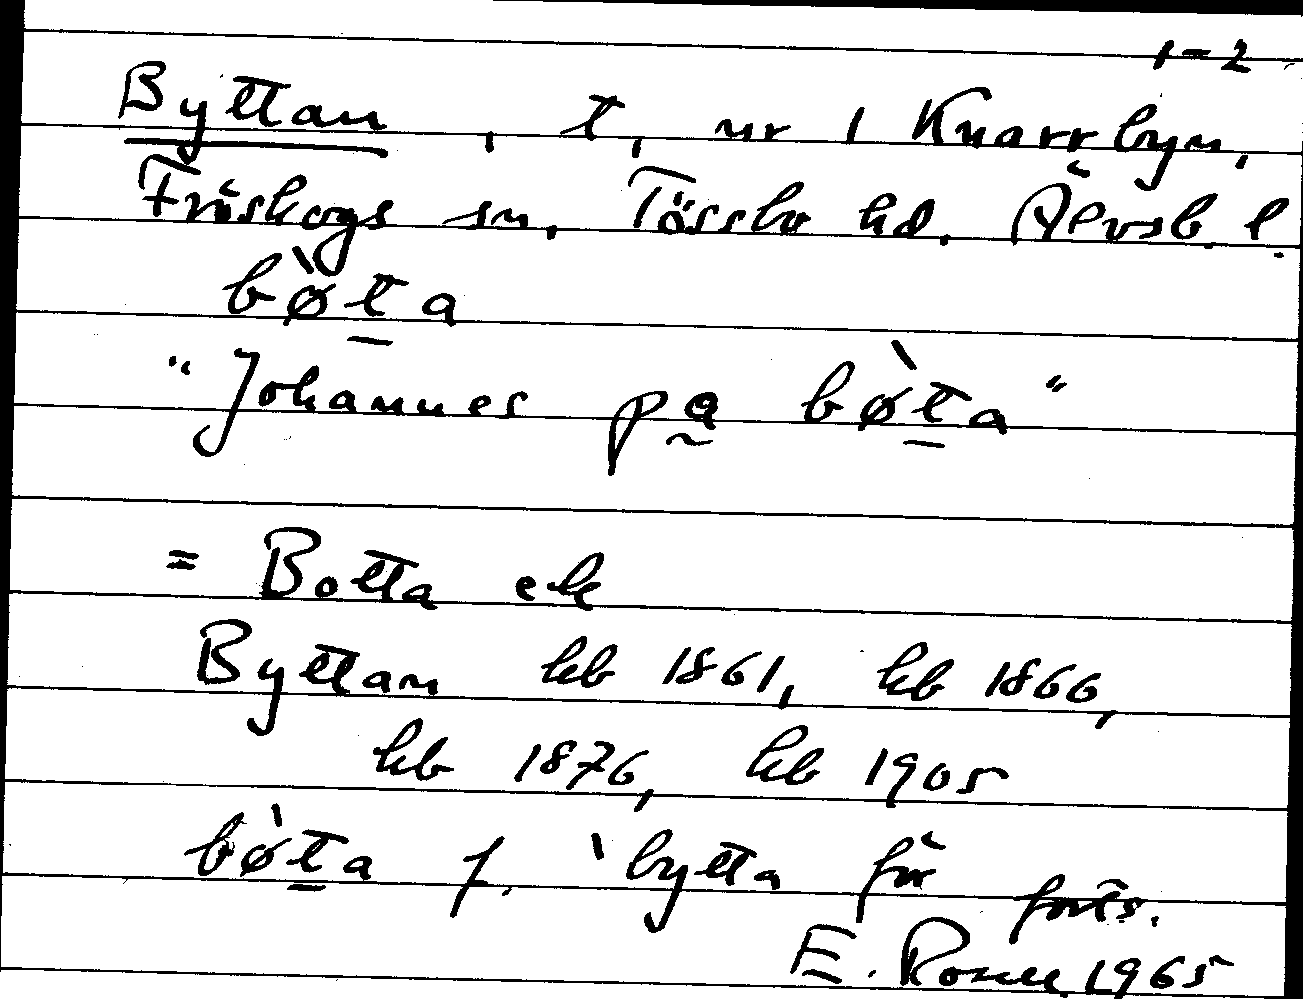 1-2
Byttan, t, nr 1 Knarrbyn,
Fröskogs sn, Tössbo hd. Älvsb. l.
bø̀t̲a
"Johannes på bø̀t̲a"
= Botta ell
Byttan hb 1861, hb 1866,
hb 1876, hb 1905
bø̀t̲a f. ' bytta för
forts.
E. Rosell 1965